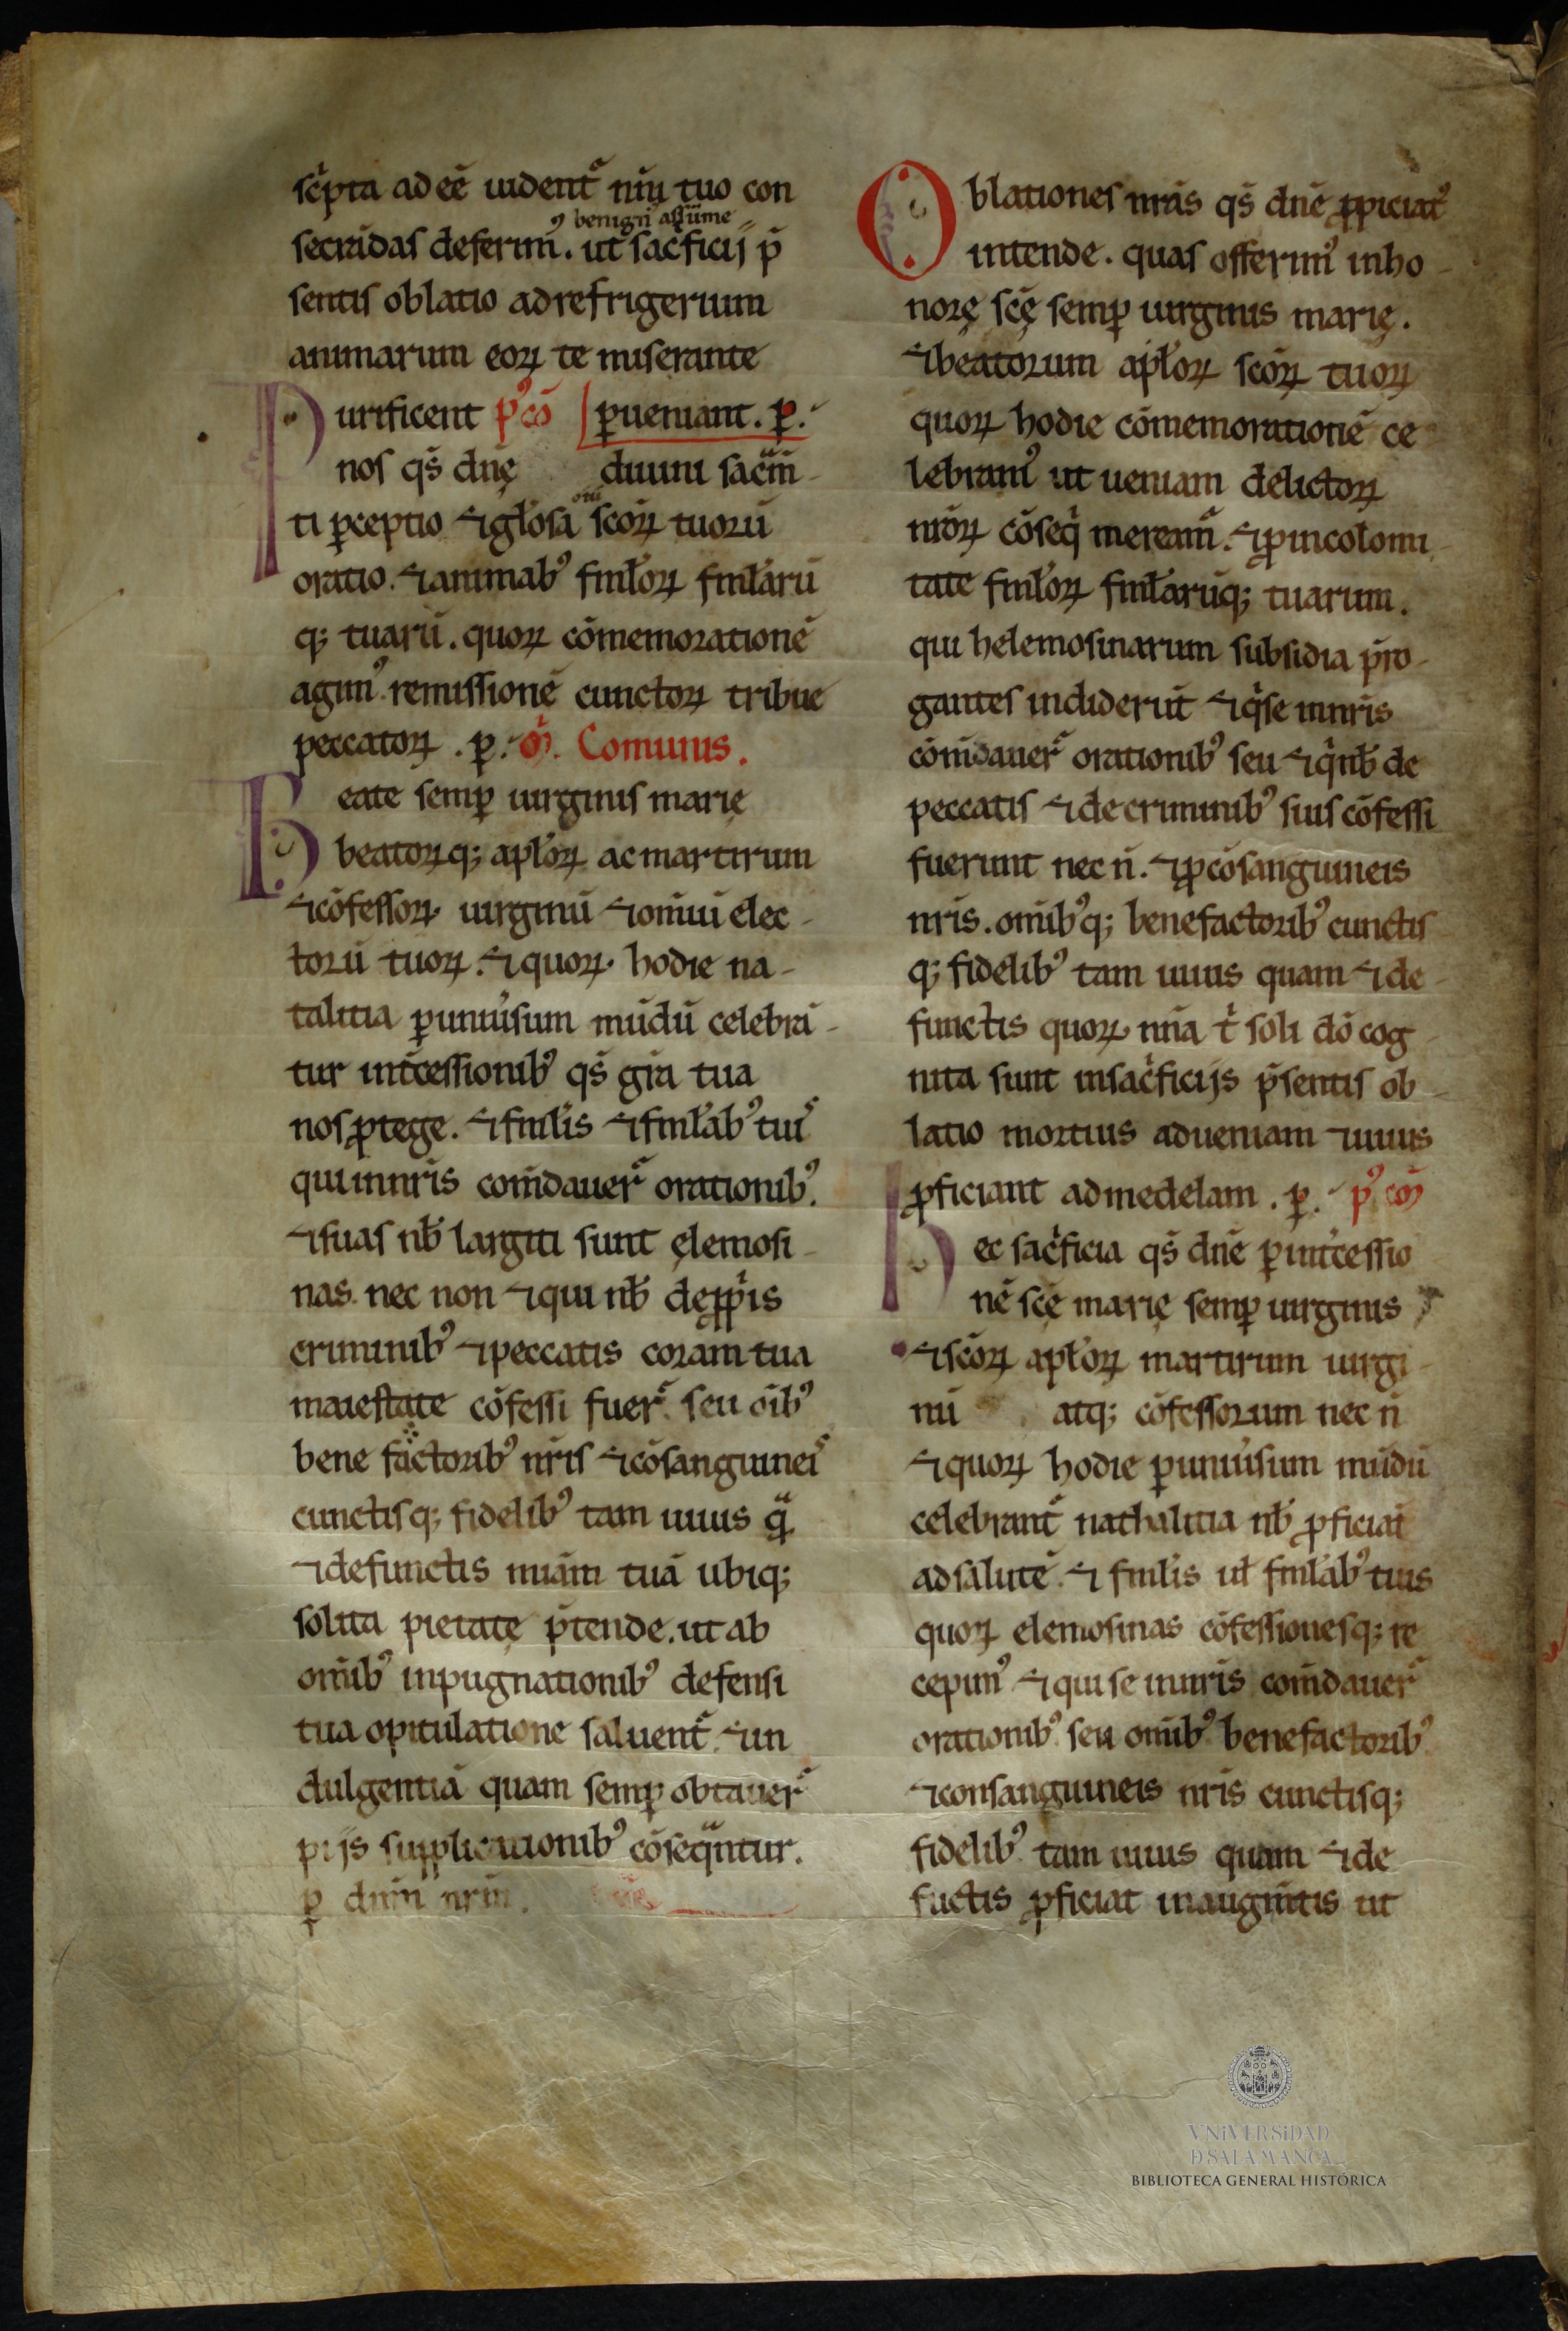 scͥpta adeē uident᷑ nr̄u tuo con
ꝰ benigni assūme
secrādas deferim᷒. ut sac̄ficij p̄
sentis oblatio adrefrigerium
animarum eoꝝ te miserante
Purificent pꝰcō ꝑueniant. ꝑ.
nos qs̄ dnę diuini sac̄m
ti ꝑceptio ⁊ gl̄osa oīu sc̄oꝝ tuorū
oratio. ⁊ animabꝰ fml̄oꝝ fml̄arū
q; tuarū. quoꝝ cōmemorationē
agimꝰ remissionē cunctoꝝ tribue
peccatoꝝ. ꝑ. oͬ. Comunis.
Beate semꝑ uirginis marię
beatoꝝq; apl̄oꝝ ac martirum
⁊ cōfessoꝝ uirginū ⁊ omīuī elec
torū tuoꝝ. ⁊ quoꝝ hodie na-
talitia ꝑuniu̓sum mūdū celebrā
tur int̄cessionibꝰ qs̄ gr̄a tua
nos ꝓtege. ⁊ fml̄is ⁊ fml̄abꝰ tuiˢ
qui innr̄is com̄dauer᷑ orationibꝰ.
⁊ suas nb̄ largiti sunt ęlemosi
nas. nec non ⁊ qui nb̄ deꝓpͥis
criminibꝰ ⁊ peccatis coram tua
maiestate cōfessi fuer᷑. seu oībꝰ
bene factoribꝰ nr̄is ⁊ cōsanguineiˢ
cunctisq; fidelibꝰ tam uiuis qᷓ
⁊ defunctis mīam tuā ubiq;
solita pietatę p̄tende. ut ab
omībꝰ inpugnationibꝰ defensi
tua opitulatione saluent᷑. ⁊ in
dulgentiā quam semꝑ obtauer᷑
pijs supplicationibꝰ cōseqᷓntur.
ꝑ dnm̄ nrm̄.
Oblationes nrās qs̄ dnē ꝓpiciatꝰ
intende. quas offerimꝰ inho
norę scę̄ semꝑ uirginis marię.
⁊ beatorum apl̄oꝝ scōꝝ tuoꝝ
quoꝝ hodie cōmemorationē ce
lebramꝰ ut ueniam delictoꝝ
nrōꝝ cōseqͥ meream᷑. ⁊ ꝓincolomi
tate fml̄oꝝ fml̄arūq; tuarum.
qui helemosinarum subsidia p̄ro
gantes indiderūt ⁊ qͥse innr̄is
cōm̄dauer᷑ orationibꝰ seu ⁊ qͥ nb̄ de
peccatis ⁊ de criminibꝰ suis cōfessi
fuerunt nec n̄. ⁊ ꝓcōsanguineis
nr̄is. omībꝰq; benefactoribꝰ cunctis
q; fidelibꝰ tam uiuis quam ⁊ de
functis quoꝝ nm̄a tͥ soli dō cog
nita sunt insacͥficijs p̄sentis ob
latio mortuis adueniam ⁊ uiuis
ꝓficiant admedelam. ꝑ. pꝰ cō
Hec sacͥficia qs̄ dnē ꝑint̓cessio
nē scę̄ marię semꝑ uirginis
⁊ scōꝝ apl̄oꝝ martirum uirgi
nū atq; cōfessorum nec n̄
⁊ quoꝝ hodie ꝑuniu̓sum mūdū
celebrant᷑ nathalitia nb̄ ꝓficiāt
adsalutē. ⁊ fml̄is ul̄ fml̄abꝰ tuis
quoꝝ elemosinas cōfessionesq; re
cepimꝰ ⁊ qui se innr̄is com̄dauer᷑
orationibꝰ. seu omībꝰ benefactoribꝰ
⁊ consanguineis nr̄is cunctisq;
fidelibꝰ tam uiuis quam ⁊ de
fuctis ꝓficiat inaugm̄tis ut
VNIVERSIDAD
D SALAMANCA
BIBLIOTECA GENERAL HISTÓRICA